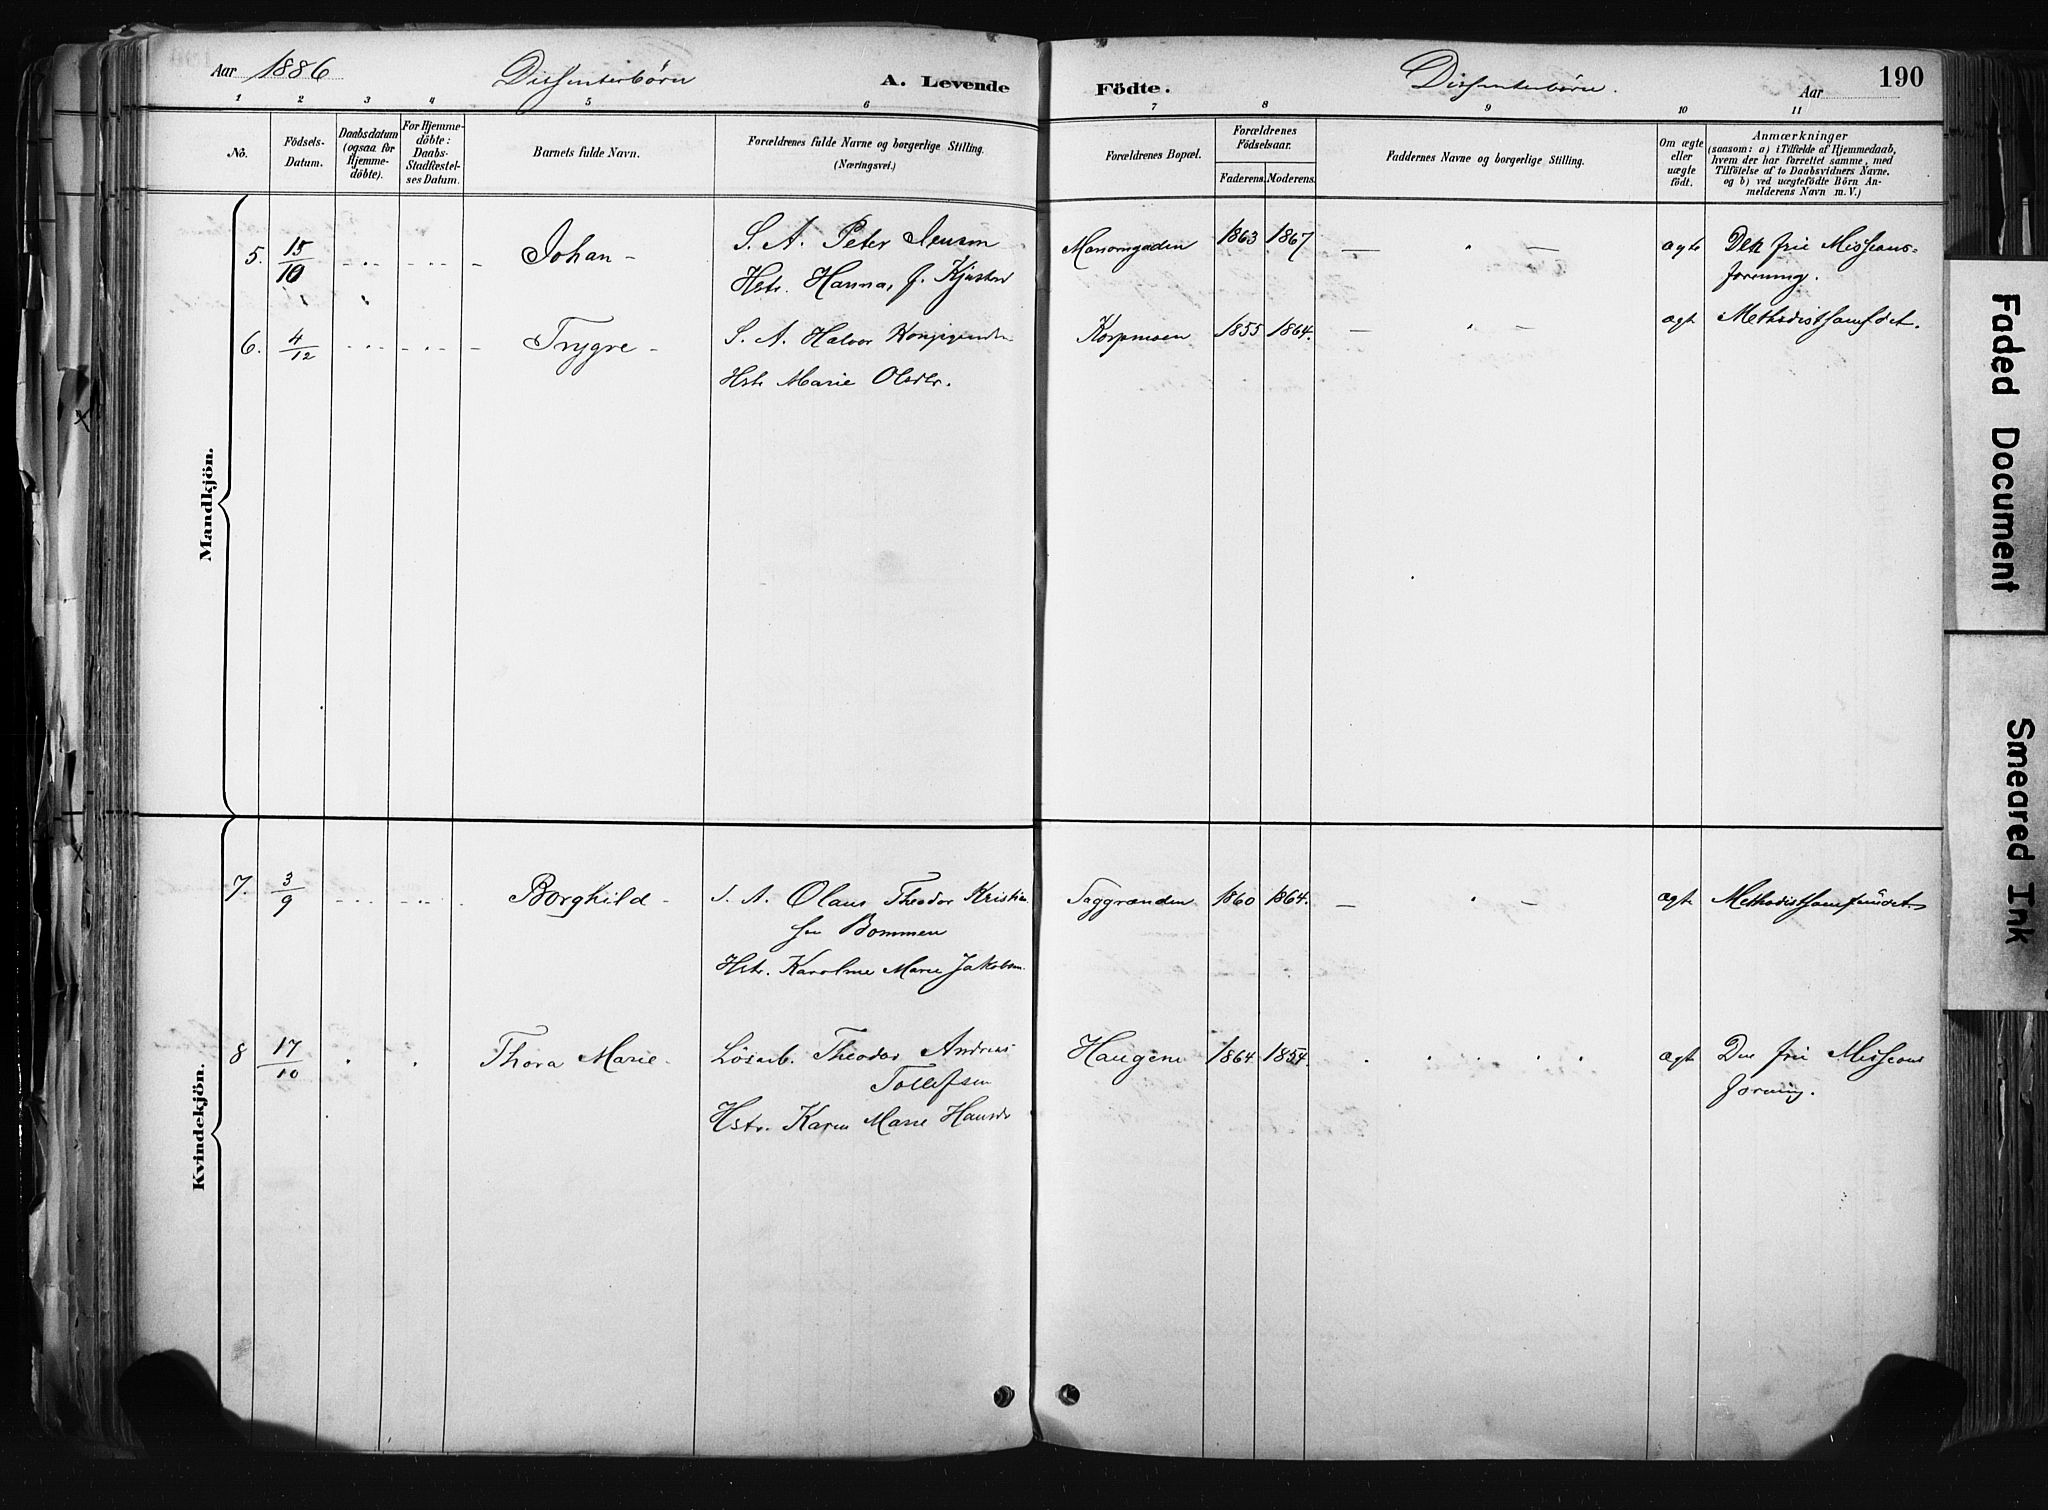 Aar 1886 Dissenterbörn A. Levende Födte. Dissenterbörn. Aar 190
1 2 3 4 5 6 7 8 9 10 11
No.
Födsels-
Datum.
Daabsdatum
(ogsaa for
Hjemme-
döbte).
For Hjemme-
döbte:
Daabs-
Stadfæstel-
ses Datum.
Barnets fulde Navn.
Forældrenes fulde Navne og borgerlige Stilling.
(Næringsvei.)
Forældrenes Bopæl.
Forældrenes
Födselsaar.
Faderens. Moderens.
Faddernes Navne og borgerlige Stilling.
Om ægte
eller
uægte
födt.
Anmærkninger
(saasom: a) i Tilfælde af Hjemmedaab,
hvem der har forrettet samme, med
Tilföielse af to Daabsvidners Navne,
og b) ved uægtefödte Börn An-
melderens Navn m. V.)
Mandkjön.
5. 15/10 Johan - S. A. Peter Jensen 1863 1867 ægte Den frie Missions-
Hstr. Hanna, f. forening.
6. 4/12 Trygve - S. A. Halvor Korpmoen 1855 1864. ægt Methodistsamfdet.
Hstr Marie Olsdr.
Kvindekjön.
7. 3/9 Borghild - S. A. Olaus Theodor Kristian- 1860 1864. ægt. Methodistsamfundet
sen Bommen
Hstr. Karoline Marie Jakobsen.
8 17/10 Thora Marie - Lösarb. Theodor Andreas Haugene 1864 1854. ægt Den frie Missions
Tollefsen forening.
Hstr. Karen Marie Hansdr
Faded Document
Smeared Ink